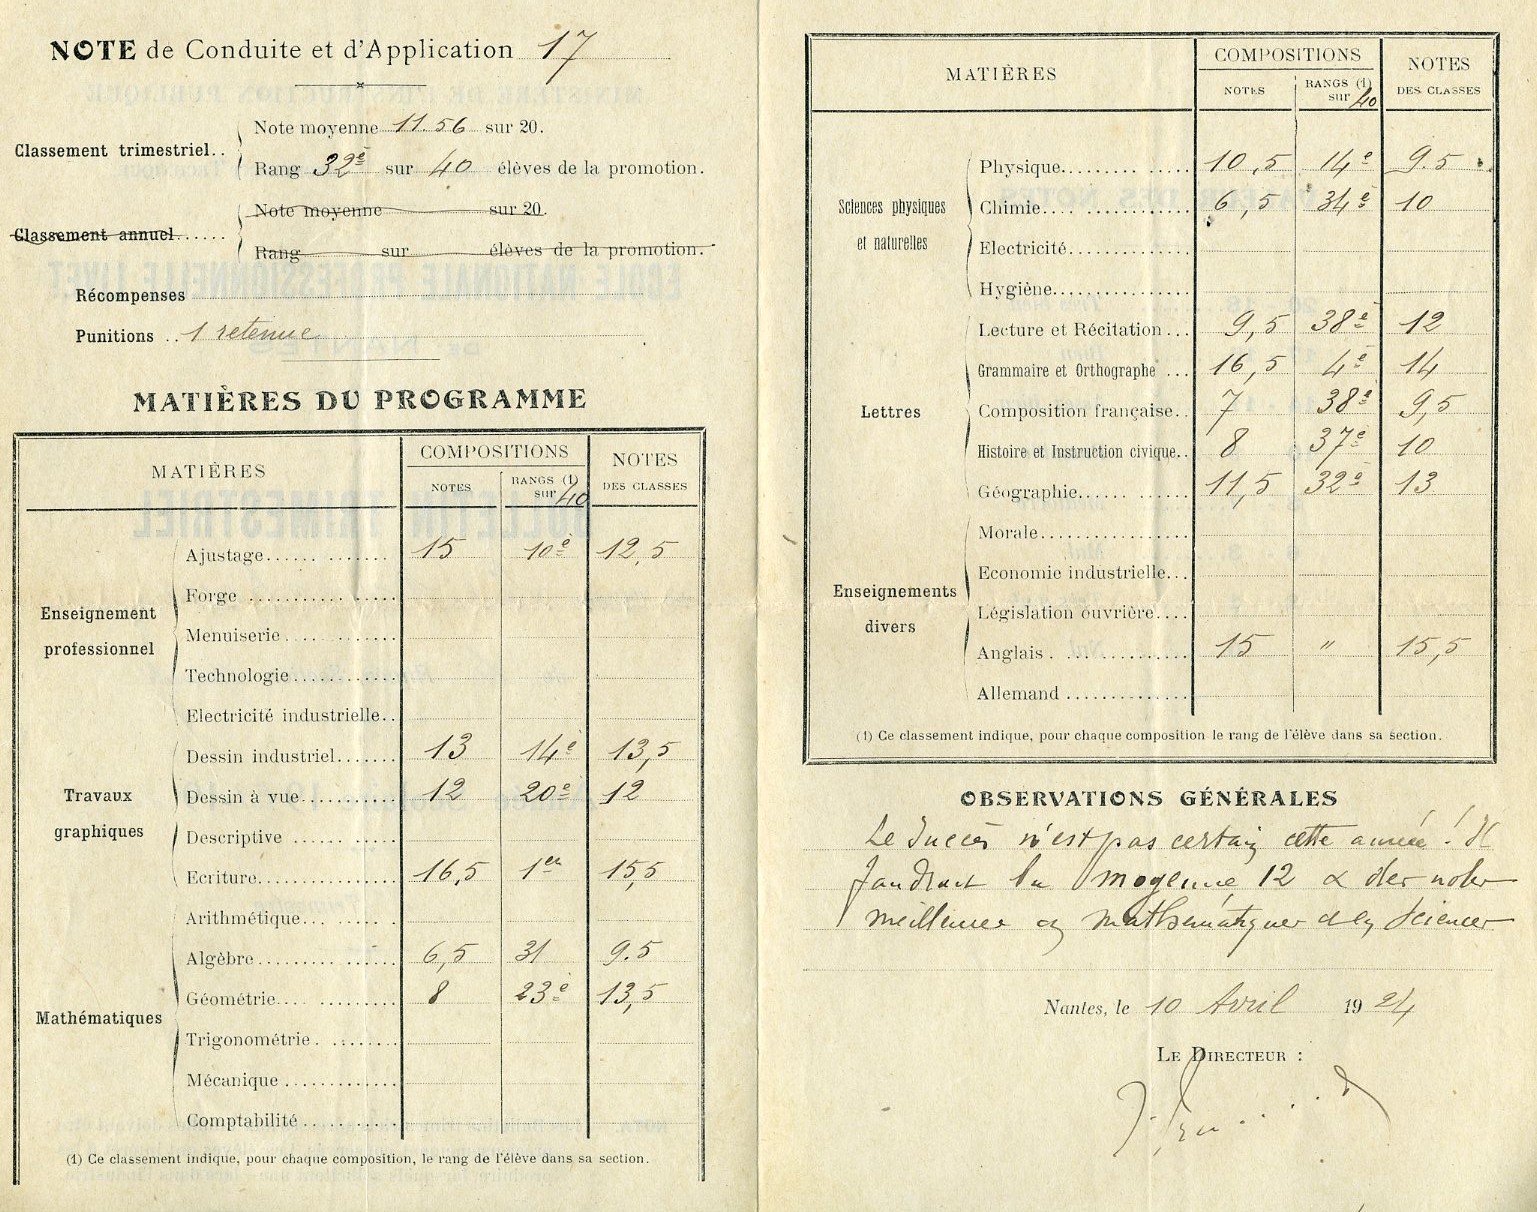 NOTE de Conduite et d'Application 17
Classement trimestriel..
Note moyenne 11.56 sur 20.
Rang 32e sur 40 élèves de la promotion.
Classement annuel......
Note moyenne sur 20.
Rang sur élèves de la promotion.
Récompenses
Punitions .. 1 retenue
MATIÈRES DU PROGRAMME
MATIÈRES
COMPOSITIONS
NOTES
RANGS (1) sur 40
NOTES DES CLASSES
Enseignement professionnel
Ajustage 15 10e 12,5
Forge
Menuiserie
Technologie
Electricité industrielle
Travaux graphiques
Dessin industriel 13 14e 13,5
Dessin à vue 12 20e 12
Descriptive
Ecriture 16,5 1er 15,5
Mathématiques
Arithmétique
Algèbre 6,5 31 9.5
Géométrie 8 23e 13,5
Trigonométrie
Mécanique
Comptabilité
(1) Ce classement indique, pour chaque composition, le rang de l'élève dans sa section.
MATIÈRES
COMPOSITIONS
NOTES
RANGS (1) sur 40
NOTES DES CLASSES
Sciences physiques et naturelles
Physique 10,5 14e 9.5
Chimie 6,5 34e 10
Electricité
Hygiène
Lettres
Lecture et Récitation 9,5 38e 12
Grammaire et Orthographe 16,5 4e 14
Composition française 7 38e 9,5
Histoire et Instruction civique 8 37e 10
Géographie 11,5 32e 13
Enseignements divers
Morale
Economie industrielle
Législation ouvrière
Anglais 15 " 15,5
Allemand
(1) Ce classement indique, pour chaque composition le rang de l'élève dans sa section.
OBSERVATIONS GÉNÉRALES
Le Succès n'est pas certain cette année ! Il
faudrait la moyenne 12 & des notes
meilleures en mathématiques & en Sciences
Nantes, le 10 Avril 1924
LE DIRECTEUR :